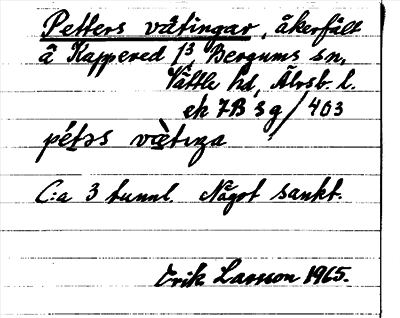 Petters vätingar, åkerfält
å Kappered 1³ Bergums sn,
Vättle hd, Älvsb. l.
ek 7B 3g/403
pétəs væ̀tıŋa
C:a 3 tunnl. Något sankt.
Erik Larsson 1965.